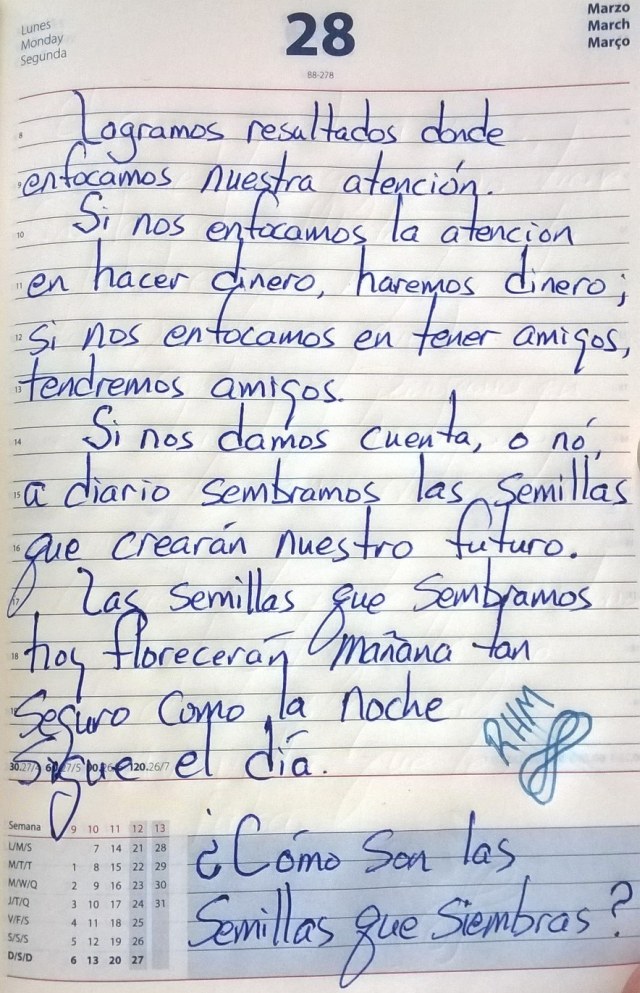 Lunes
Monday
Segunda
28
88-278
Marzo
March
Março
8
Logramos resultados donde
enfocamos nuestra atención.
10
Si nos enfocamos la atencion
11
en hacer dinero, haremos dinero;
12
si nos enfocamos en tener amigos,
13
tendremos amigos.
14
Si nos damos cuenta, o nó,
15
a diario sembramos las semillas
16
que crearán nuestro futuro.
17
Las semillas que sembramos
18
hoy florecerán mañana tan
seguro como la noche
RHM
sigue el día.
120.26/7
Semana 9 10 11 12 13
L/M/S 7 14 21 28
M/T/T 1 8 15 22 29
M/W/Q 2 9 16 23 30
J/T/Q 3 10 17 24 31
V/F/S 4 11 18 25
S/S/S 5 12 19 26
D/S/D 6 13 20 27
¿Cómo son las
semillas que siembras?